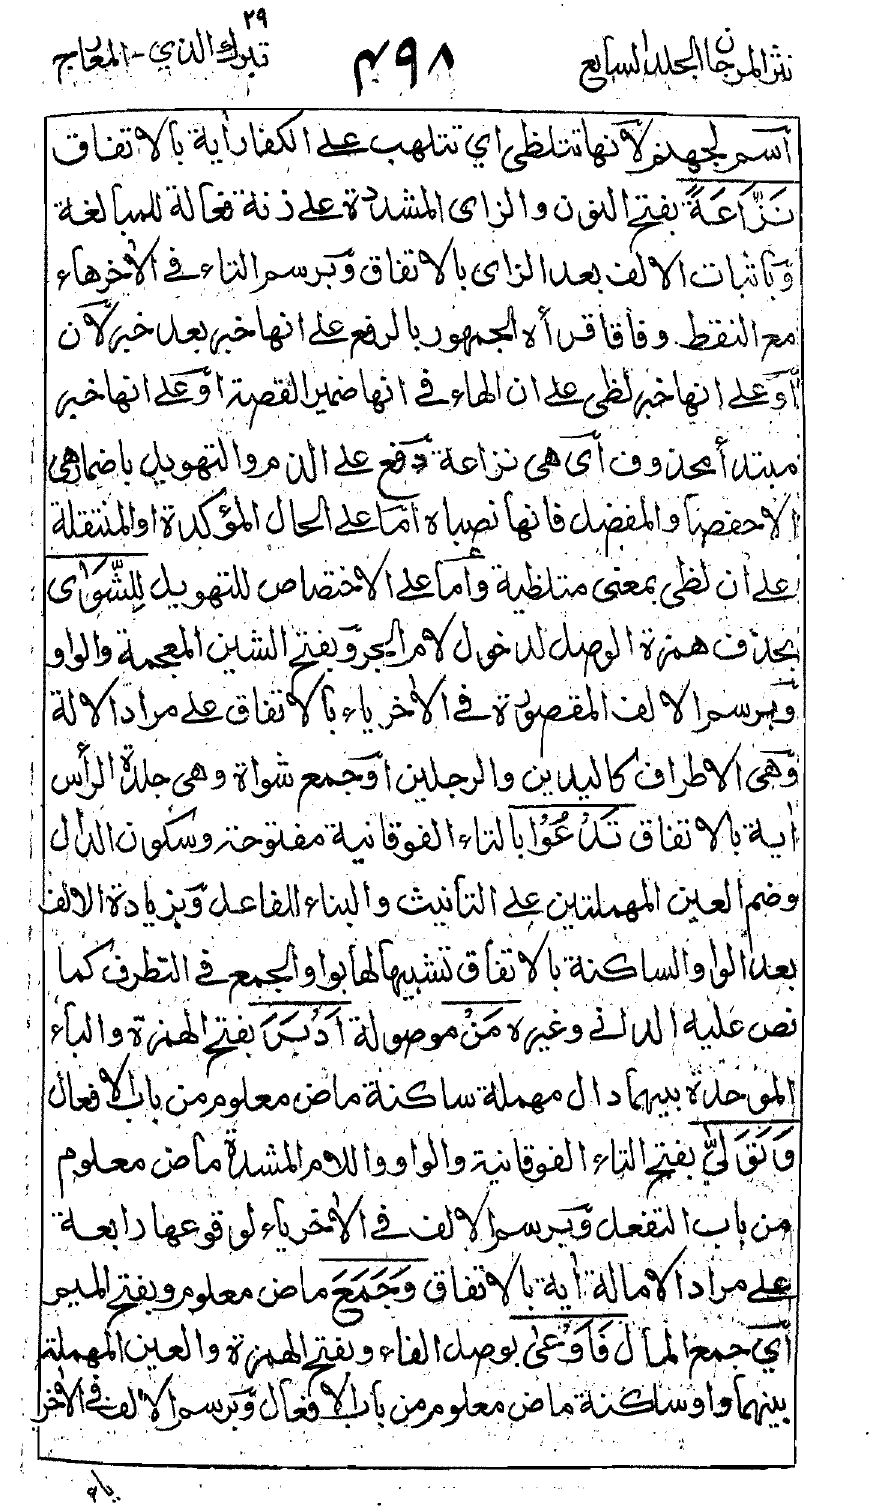 نثر المرجان الجلد السابع
٤٩٨
٢٩
تبرك الذي - المعارج
اسم لجهنم لانها تتلظى اي تتلهب على الكفار أية بالاتفاق
نَزَّاعَةً بفتح النون والزاى المشددة على زنة فعالة للمبالغة
وباثبات الالف بعد الزاى بالاتفاق وبرسم التاء في الأخر هاء
مع النقط وفاقا قرأه الجمهور بالرفع على انها خبر بعد خبر لان
او على انها خبر لظى على ان الهاء في انها ضمير القصة او على انها خبر
مبتدأ محذوف اى هى نزاعة رفع على الذم والتهويل باضمار هى
الا حفصا والمفضل فانها نصباه اما على الحال المؤكدة او المنتقلة
على ان لظى بمعنى متلظية واما على الاختصاص للتهويل لِلشَّوٰى
بحذف همزة الوصل لدخول لام الجر وبفتح الشين المعجمة والواو
وبرسم الالف المقصورة في الأخر ياء بالاتفاق على مراد الامالة
وهى الاطراف كاليدين والرجلين او جمع شواة وهى جلدة الرأس
اية بالاتفاق تَدْعُوْا بالتاء الفوقانية مفتوحة وسكون الدال
وضم العين المهملتين على التأنيث والبناء للفاعل وبزيادة الالف
بعد الواو الساكنة بالاتفاق تشبيها لها بواو الجمع في التطرف كما
نص عليه الدانى وغيره مَنْ موصولة اَدْبَرَ بفتح الهمزة والباء
الموحدة بينهما دال مهملة ساكنة ماض معلوم من باب الافعال
وَتَوَلّٰى بفتح التاء الفوقانية والواو واللام المشددة ماض معلوم
من باب التفعل وبرسم الالف في الأخر ياء لوقوعها رابعة
على مراد الامالة أية بالاتفاق وَجَمَعَ ماض معلوم وبفتح الميم
اى جمع المال فَاَوْعٰى بوصل الفاء وبفتح الهمزة والعين المهملة
بينهما واو ساكنة ماض معلوم من باب الافعال وبرسم الالف في الأخر
ياء